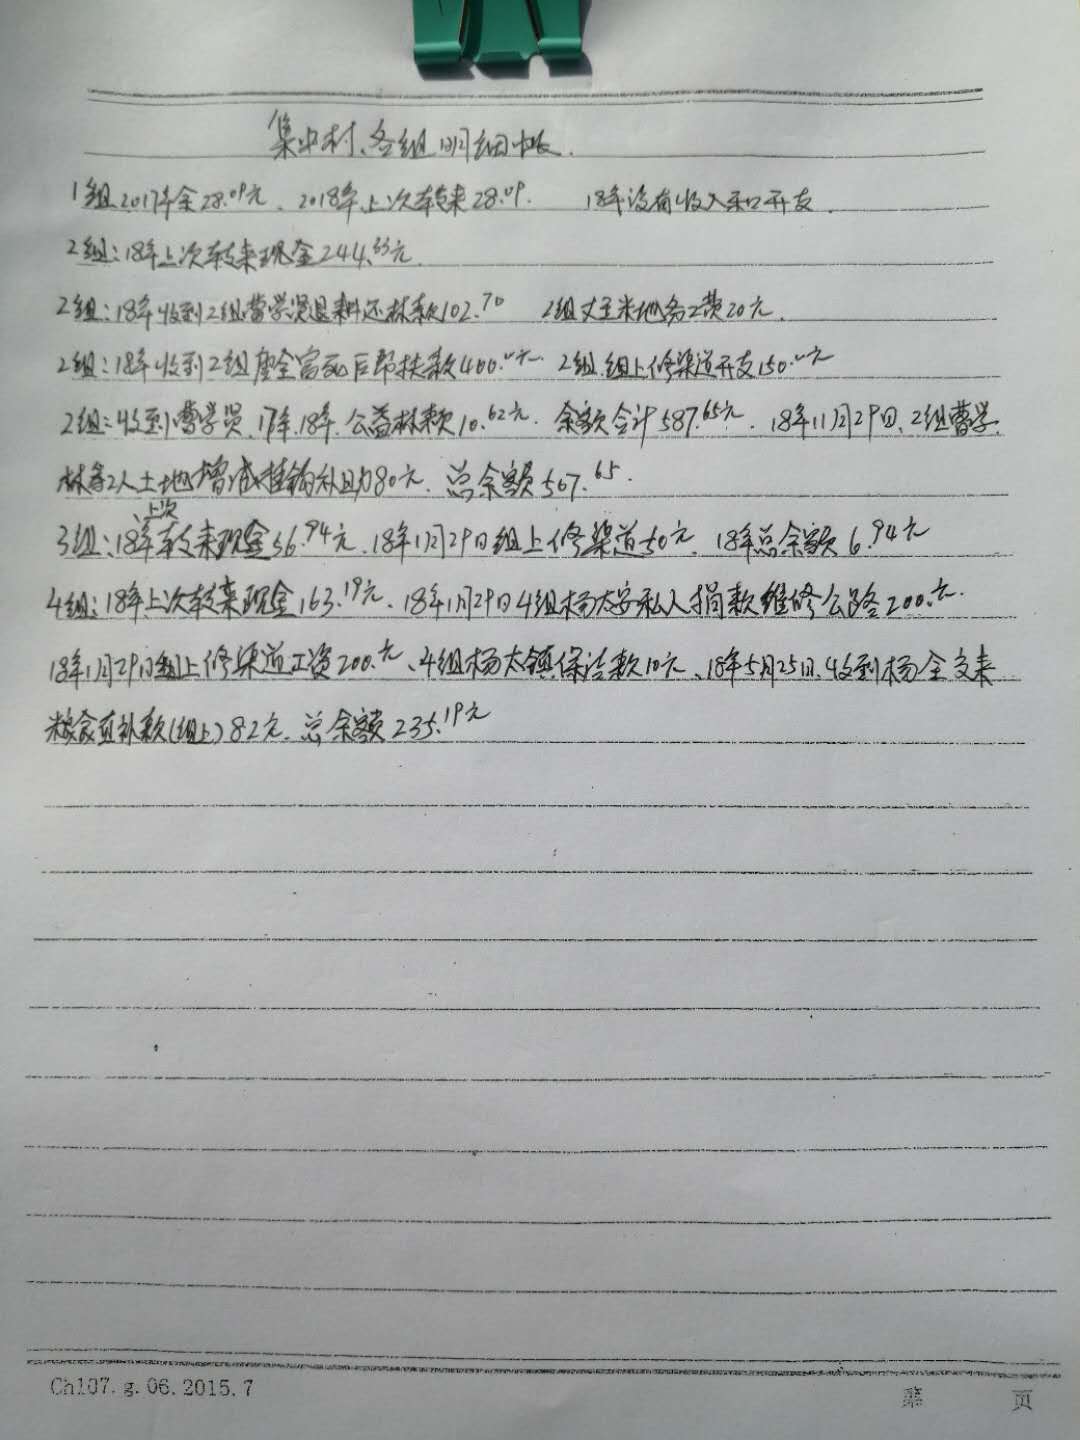 集中村、各组明细帐.
1组2017年余28.09元、2018年上次转来28.09. 18年没有收入和开支.
2组:18年上次转来现金244.33元.
2组:18年收到2组曹学贤退耕还林款102.70 2组丈玉米地务工费20元.
2组:18年收到2组 全富死后帮扶款400.00元. 2组.组上修渠道开支150.00元
2组:收到曹学贤.17年.18年.公益林款10.62元. 余额合计587.65元. 18年11月29日.2组曹学
林等2人土地增减挂钩补助80元. 总余额507.65.
3组:18年上次转来现金56.94元.18年1月29日组上修渠道50元. 18年总余额6.94元
4组:18年上次转来现金163.19元.18年1月29日4组杨太安私人捐款维修公路200.元.
18年1月29日组上修渠道工资200.元、4组杨太镇保洁款10元、18年5月25日.收到杨全文来
粮食直补款(组上)82元. 总余额235.19元
Ch107.g.06.2015.7
第 页